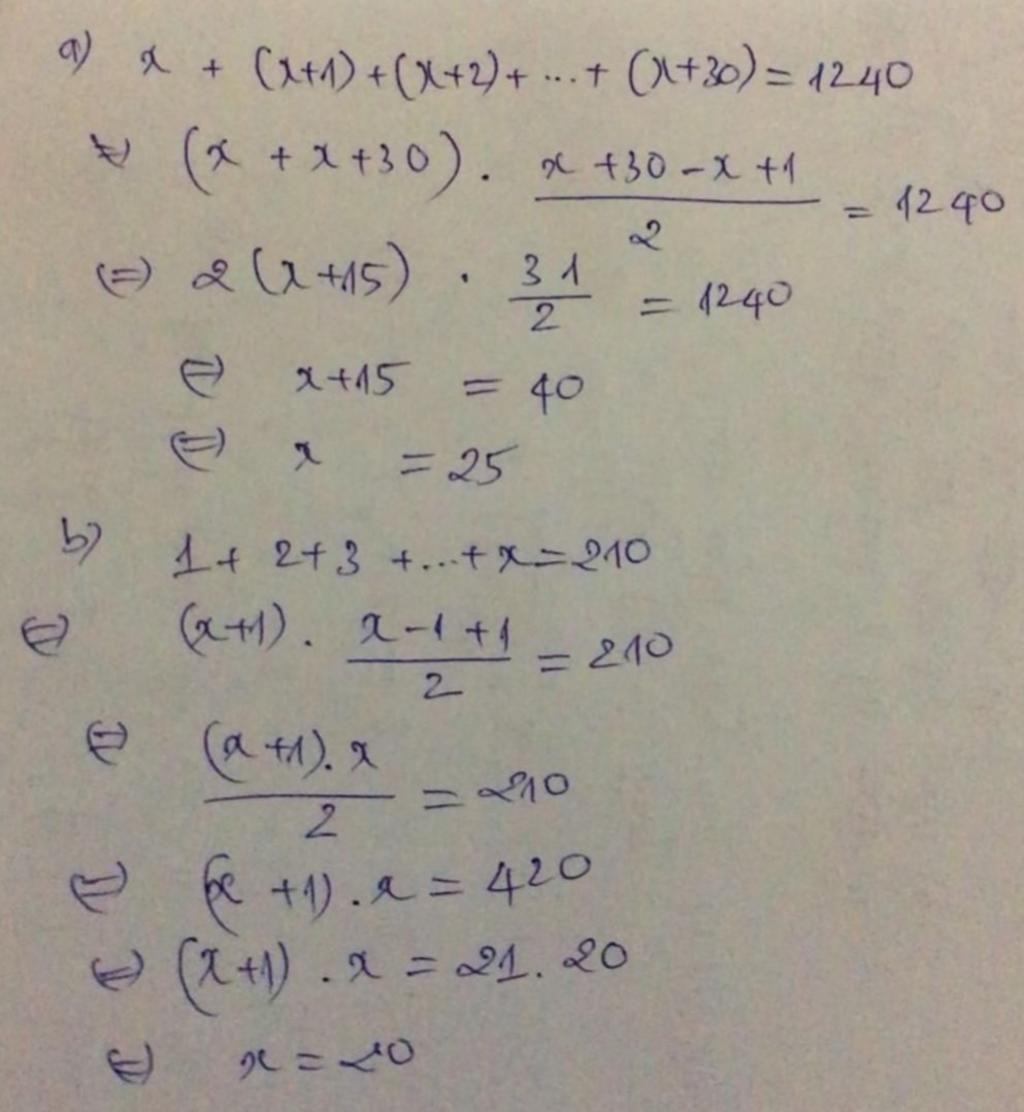 a) x + (x+1)+(x+2)+ ...+ (x+30) = 1240
⇔ (x + x+30) . \frac{x+30-x+1}{2} = 1240
(=) 2(x+15) . \frac{31}{2} = 1240
(=) x+15 = 40
(=) x = 25
b) 1+ 2+3 +...+x=210
(=) (x+1) . \frac{x-1+1}{2} = 210
(=) \frac{(x+1).x}{2} = 210
(=) (x +1).x = 420
(=) (x+1).x = 21. 20
(=) x = 20